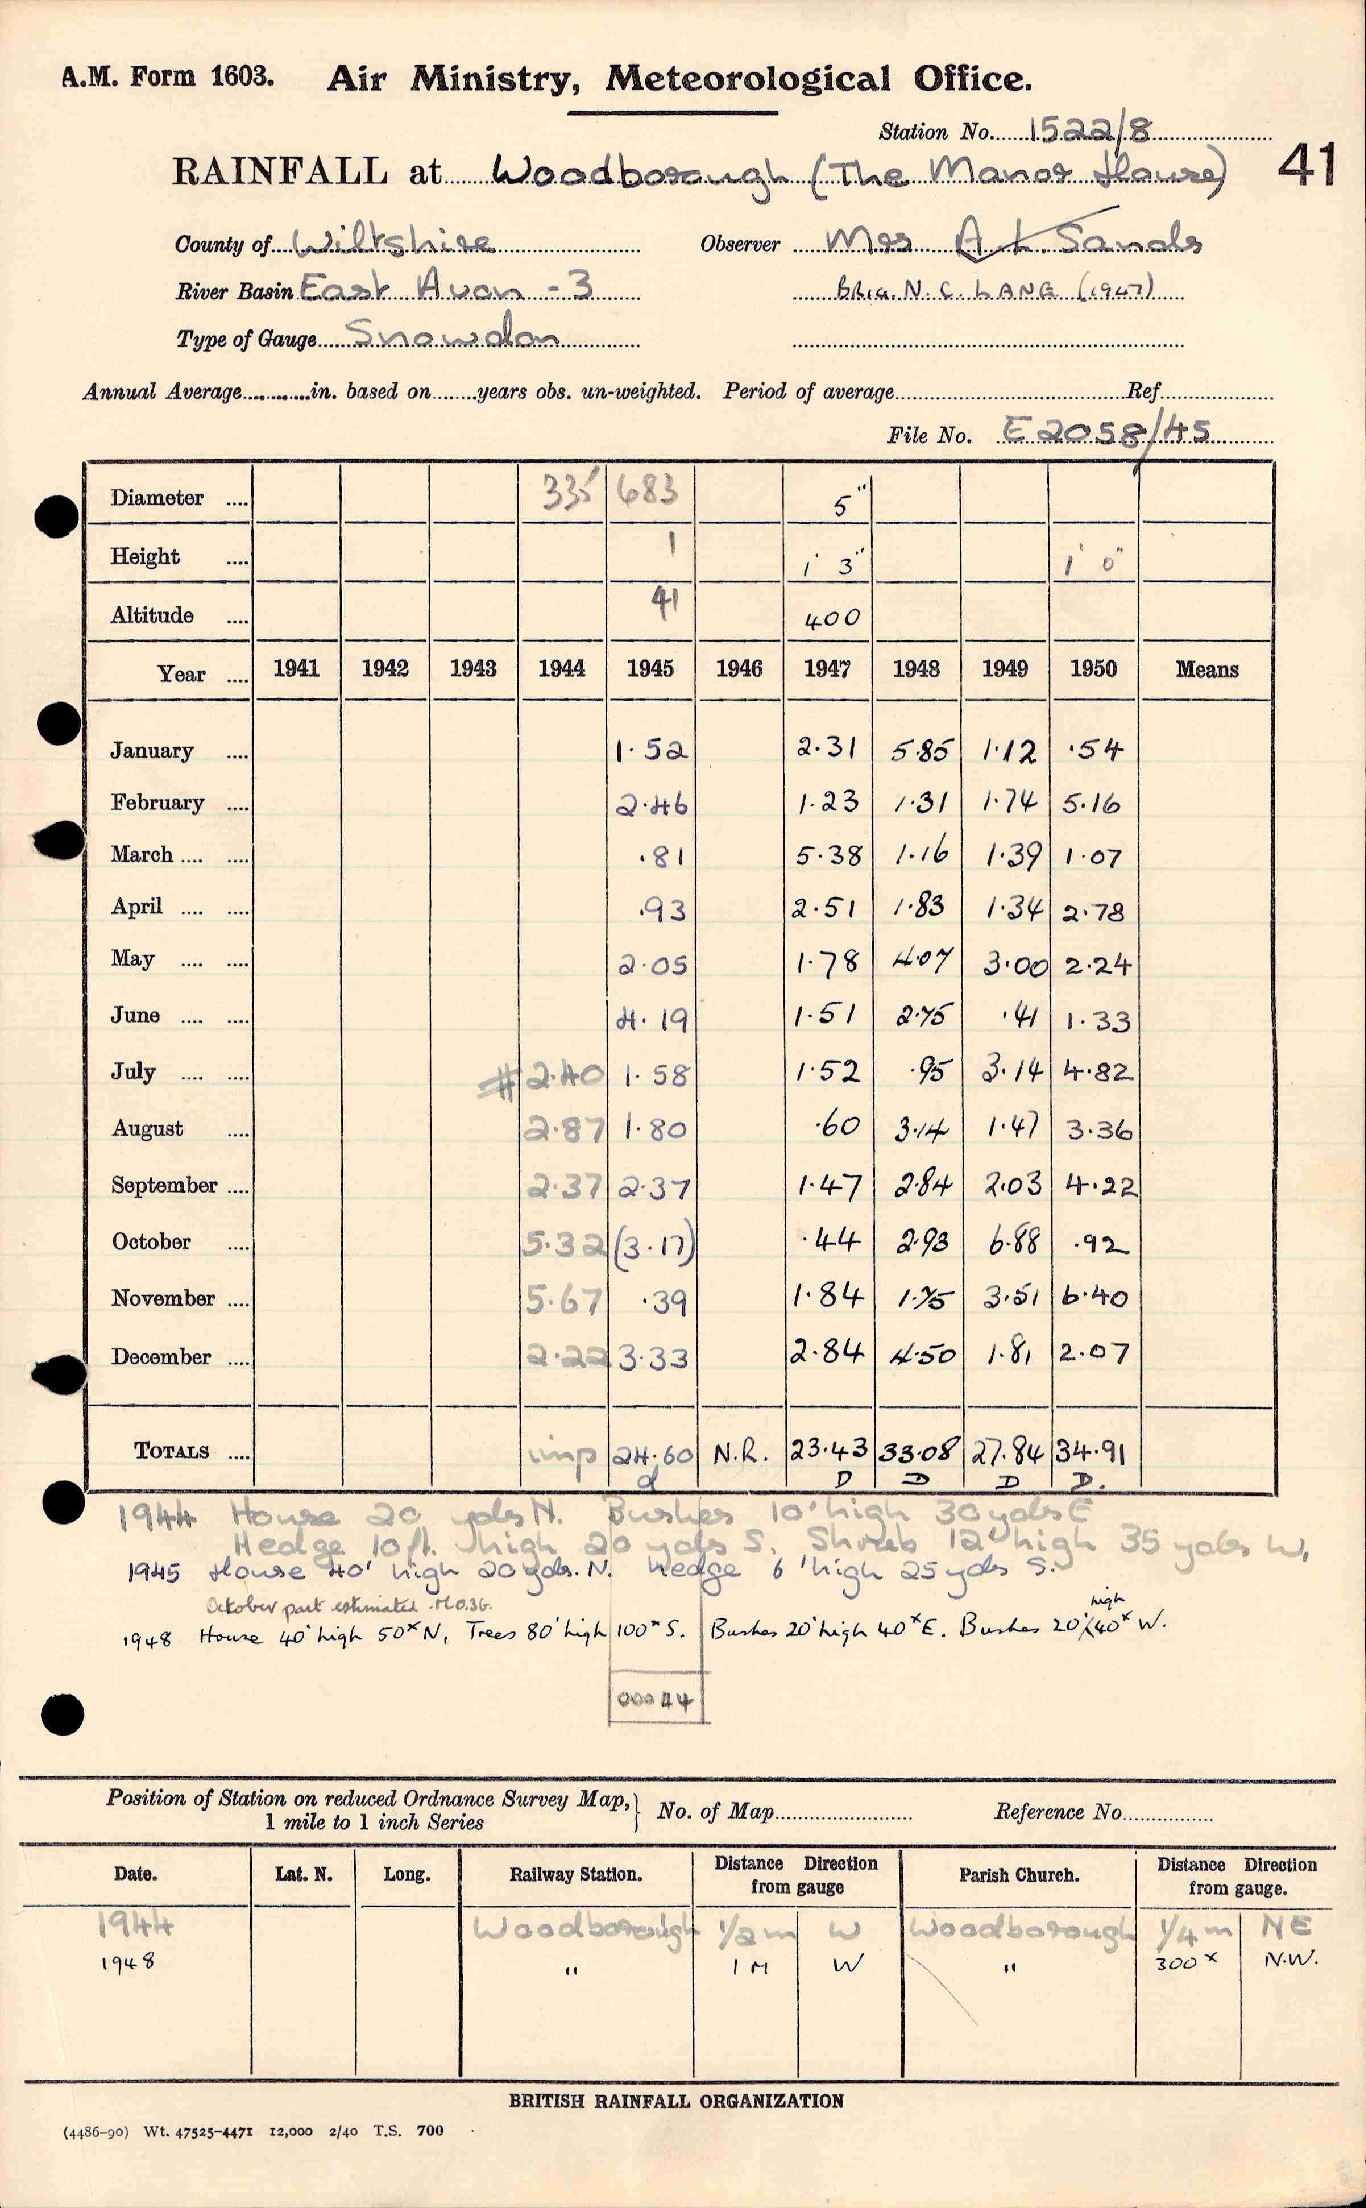 A.M. Form 1603. Air Ministry, Meteorological Office.
Station No. 1522/8
RAINFALL at Woodborough (The Manor House) 41
County of Wiltshire Observer Mrs A L Sands
River Basin East Avon - 3 BRIG. N. C. LANG (1947)
Type of Gauge Snowdon
Annual Average in. based on years obs. un-weighted. Period of average Ref
File No. E 2058/45
Diameter 335 683 5"
Height 1 1' 3" 1' 0"
Altitude 41 400
Year 1941 1942 1943 1944 1945 1946 1947 1948 1949 1950 Means
January 1.52 2.31 5.85 1.12 .54
February 2.46 1.23 1.31 1.74 5.16
March .81 5.38 1.16 1.39 1.07
April .93 2.51 1.83 1.34 2.78
May 2.05 1.78 4.07 3.00 2.24
June 4.19 1.51 2.75 .41 1.33
July # 2.40 1.58 1.52 .95 3.14 4.82
August 2.87 1.80 .60 3.14 1.47 3.36
September 2.37 2.37 1.47 2.84 2.03 4.22
October 5.32 (3.17) .44 2.93 6.88 .92
November 5.67 .39 1.84 1.75 3.51 6.40
December 2.22 3.33 2.84 4.50 1.81 2.07
TOTALS imp 24.60 N.R. 23.43 33.08 27.84 34.91
d D D D D.
1944 House 20 yds N. Bushes 10' high 30 yds E
Hedge 10 ft. high 20 yds S. Shrub 12' high 35 yds W.
1945 House 40' high 20 yds. N. hedge 6' high 25 yds S.
October part estimated M.O.3G.
1948 House 40' high 50x N, Trees 80' high 100x S. Bushes 20' high 40x E. Bushes 20' high 40x W.
Position of Station on reduced Ordnance Survey Map, 1 mile to 1 inch Series No. of Map Reference No.
Date. Lat. N. Long. Railway Station. Distance Direction from gauge Parish Church. Distance Direction from gauge.
1944 Woodborough 1/2 m W Woodborough 1/4 m NE
1948 " 1 M W " 300x N.W.
BRITISH RAINFALL ORGANIZATION
(4486-90) Wt. 47525-4471 12,000 2/40 T.S. 700